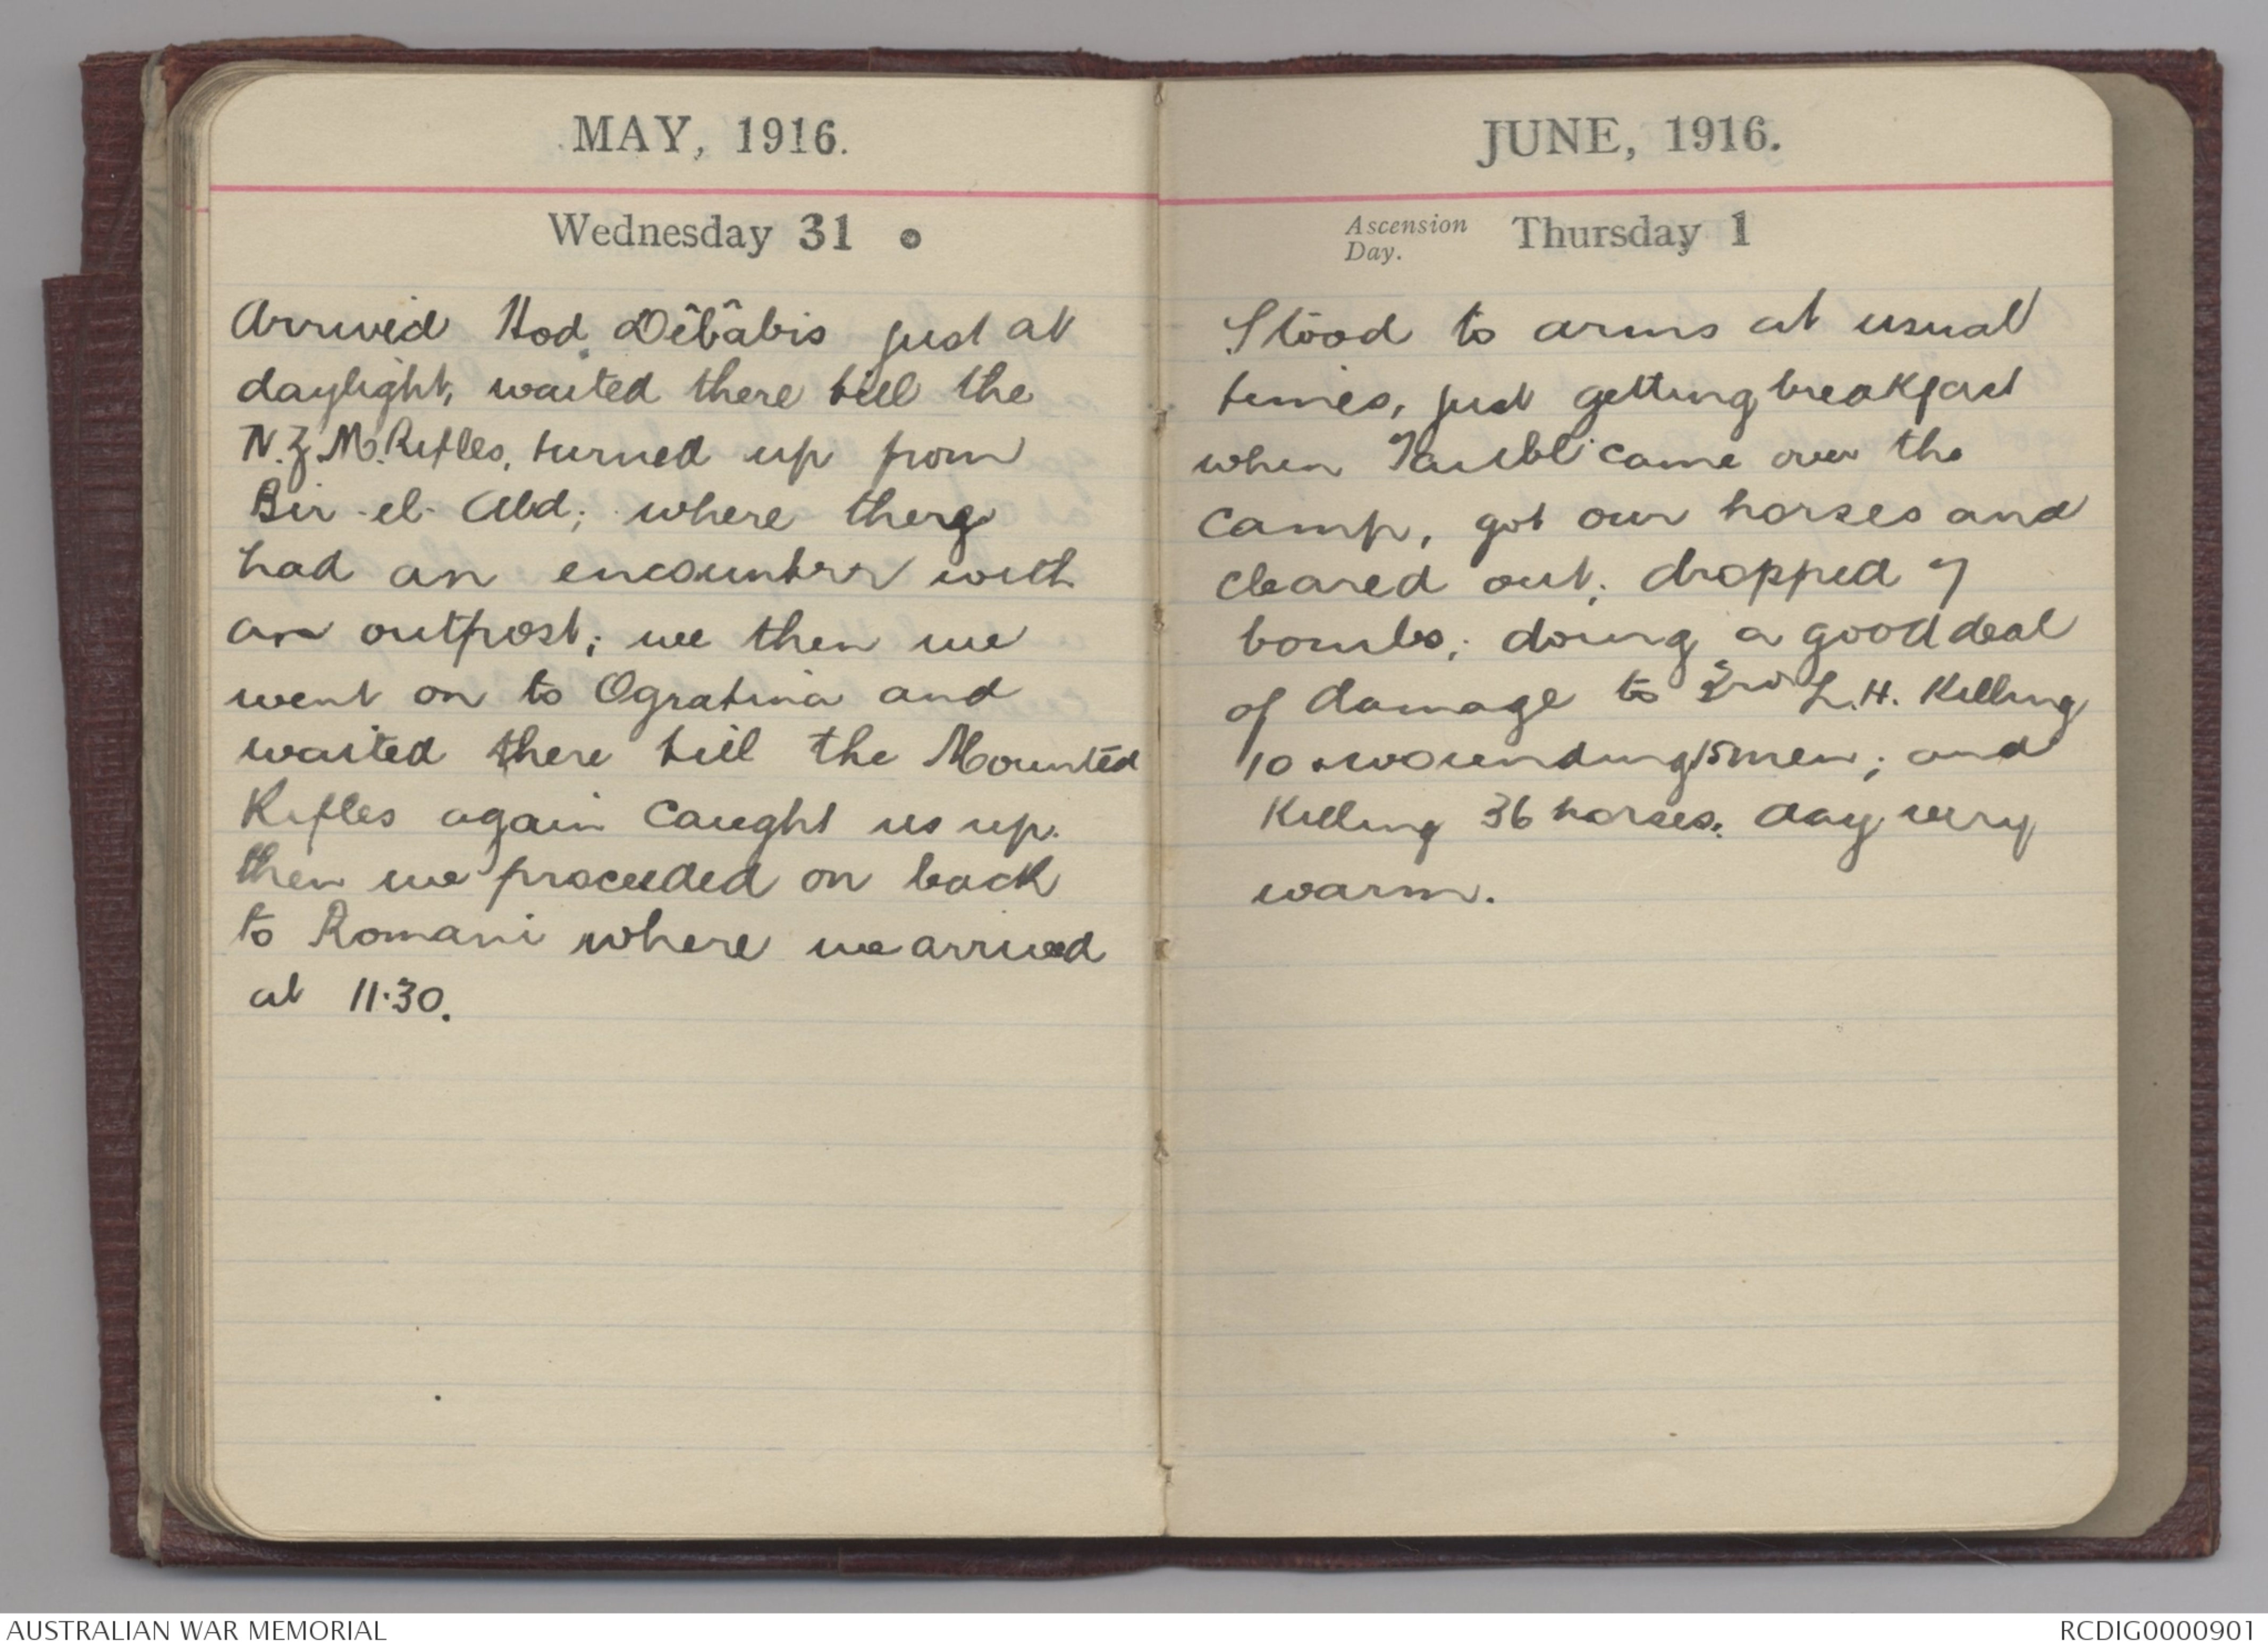 MAY, 1916.
Wednesday 31
Arrived Hod Dêbâbis just at
daylight, waited there till the
N.Z M. Rifles, turned up from
Bir-el-Abd; where they
had an encounter with
an outpost; we then we
went on to Ogratina and
waited there till the Mounted
Rifles again caught us up.
then we proceeded on back
to Romani where we arrived
at 11.30.
JUNE, 1916.
Ascension Day. Thursday 1
Stood to arms at usual
times, just getting breakfast
when Taube came over the
camp, got our horses and
cleared out; dropped 7
bombs; doing a good deal
of damage to 3rd L.H. Killing
10 & wounding 15 men; and
Killing 36 horses. day very
warm.
AUSTRALIAN WAR MEMORIAL
RCDIG0000901